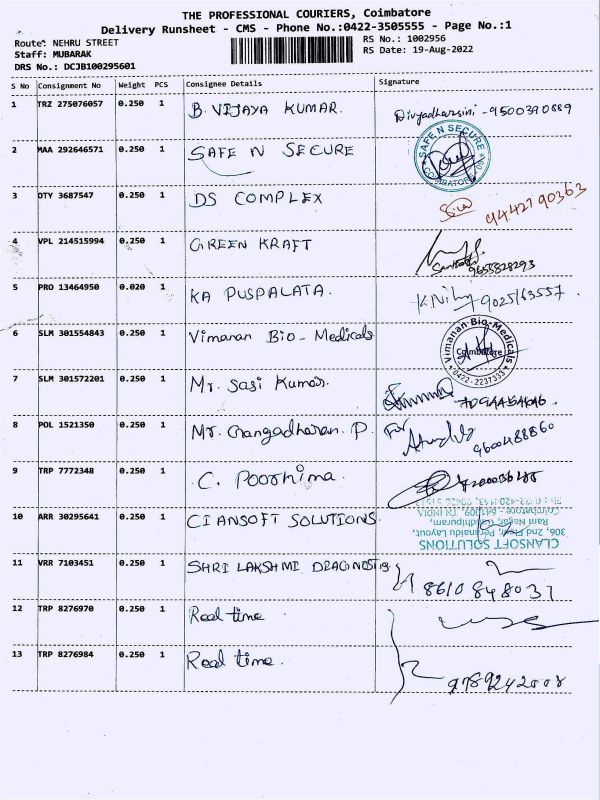 THE PROFESSIONAL COURIERS, Coimbatore
Delivery Runsheet - CMS - Phone No.:0422-3505555 - Page No.:1
Route: NEHRU STREET
Staff: MUBARAK
DRS No.: DCJB100295601
RS No.: 1002956
RS Date: 19-Aug-2022
S No Consignment No Weight PCS Consignee Details Signature
1 TRZ 275076057 0.250 1 B. VIJAYA KUMAR. Divyadharsini - 9500390889
2 MAA 292646571 0.250 1 SAFE N SECURE
SAFE N SECURE
COIMBATORE
3 OTY 3687547 0.250 1 DS COMPLEX 9442790363
4 VPL 214515994 0.250 1 GREEN KRAFT
9655828293
5 PRO 13464950 0.020 1 KA PUSPALATA. 9025163557.
6 SLM 301554843 0.250 1 Vimanan Bio-Medicals
Vimanan Bio-Medicals
Coimbatore
0422-2237333
7 SLM 301572201 0.250 1 Mr. Sasi Kumar.
8 POL 1521350 0.250 1 Mr. Gangadharan. P. For
9600488860
9 TRP 7772348 0.250 1 C. Poornima.
10 ARR 30295641 0.250 1 CIANSOFT SOLUTIONS.
CLANSOFT SOLUTIONS
306, 2nd Floor, Perinaidu Layout,
Ram Nagar, Gandhipuram,
Coimbatore - 641009, TN INDIA
11 VRR 7103451 0.250 1 SHRI LAKSHMI DIAGNOSTIS
8610848031
12 TRP 8276970 0.250 1 Real time
13 TRP 8276984 0.250 1 Real time.
9789242008